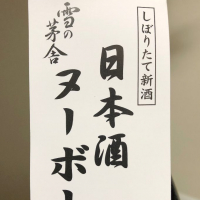 しぼりたて新酒
日本酒
ヌーボー
雪の茅舎